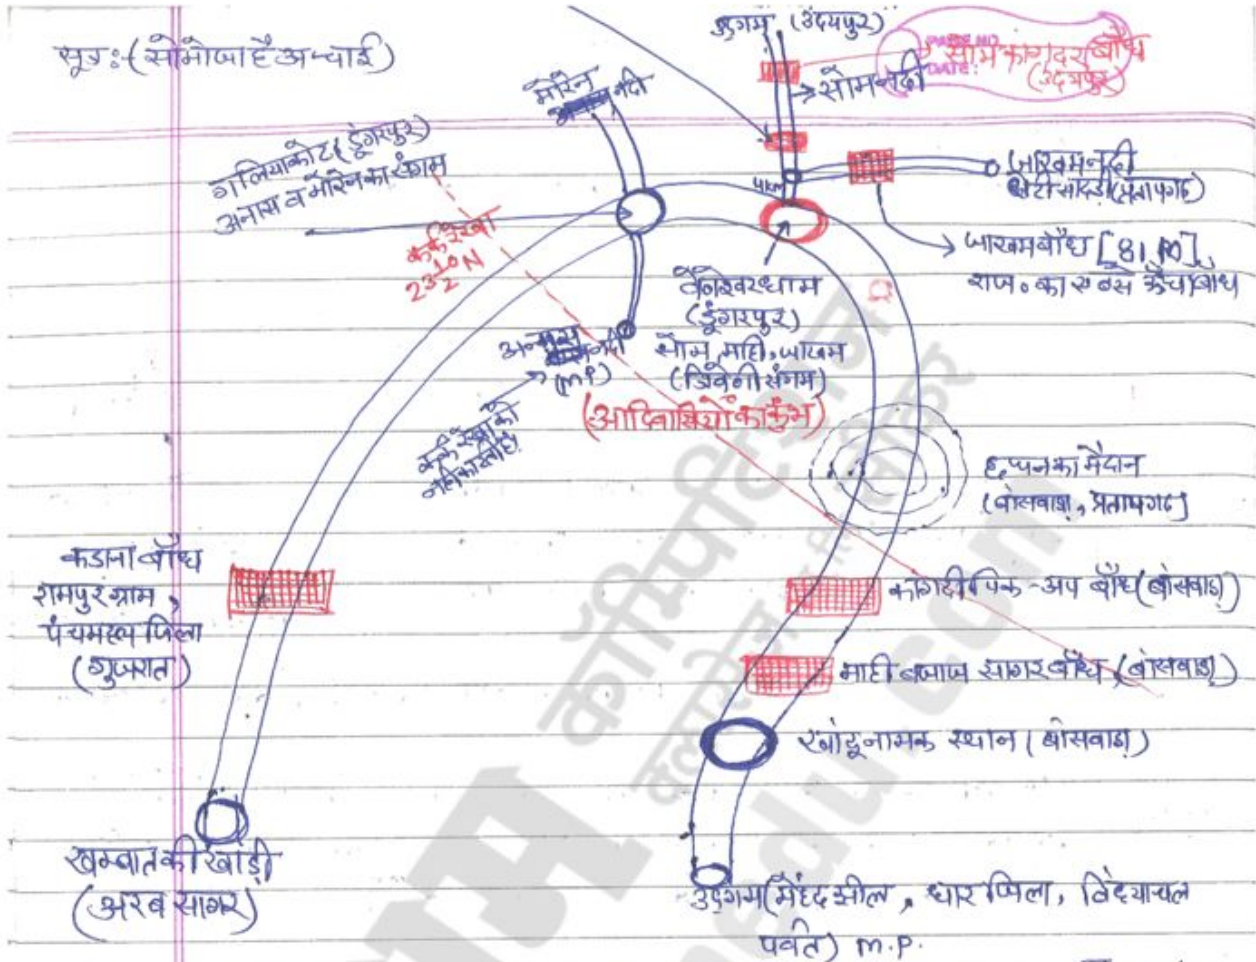 सूत्र:-(सोमोजा है अन्चाई)
उद्गम (उदयपुर)
सोम कागदर बाँध
(उदयपुर)
PAGE NO.
DATE:
→सोम नदी
मोरेन
नदी
गलियाकोट(डूंगरपुर)
अनास व मोरेन का संगम
कर्क रेखा
23½°N
4KM
जाखम नदी
छोटी सादड़ी(प्रतापगढ)
जाखम बाँध [81 M]
राज. का सबसे ऊँचा बाँध
बेणेश्वर धाम
(डूंगरपुर)
सोम, माही, जाखम
(त्रिवेणी संगम)
(आदिवासियों का कुंभ)
अनास
नदी
(M.P.)
कर्क रेखा को
नहीं काटती है।
छप्पन का मैदान
(बांसवाड़ा, प्रतापगढ)
कडाना बाँध
रामपुर ग्राम,
पंचमहल जिला
(गुजरात)
कागदी पिक-अप बाँध(बांसवाड़ा)
माही बजाज सागर बाँध (बांसवाड़ा)
खांदू नामक स्थान (बांसवाड़ा)
खम्बात की खाड़ी
(अरब सागर)
उद्गम(मेंहद झील, धार जिला, विंध्याचल
पर्वत) M.P.
कॉम्पिटिशन
edu.com